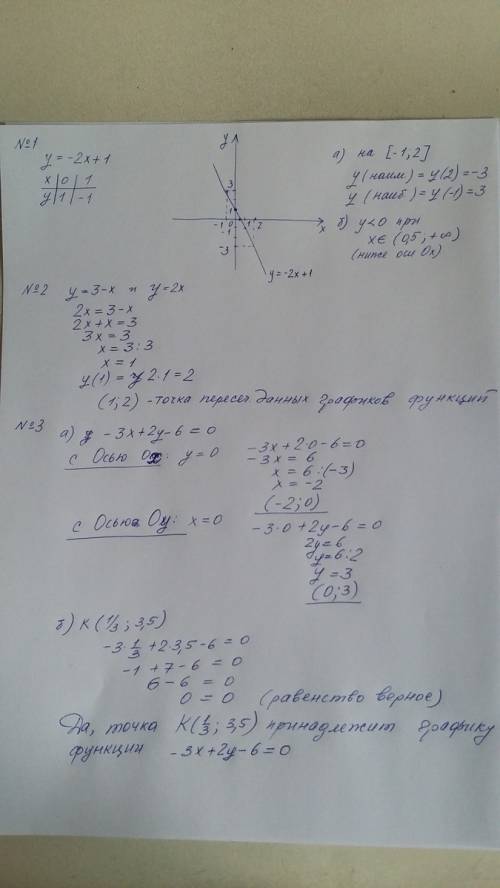 №1
y = -2x+1
x | 0 | 1
y | 1 | -1
y
3
1
-1 0 1 2
x
-1
-3
y = -2x+1
а) на [-1,2]
y(наим) = y(2) = -3
y(наиб) = y(-1) = 3
б) y<0 при
x∈(0,5; +∞)
(ниже оси Ox)
№2 y=3-x и y=2x
2x=3-x
2x+x=3
3x=3
x=3:3
x=1
y(1) = 2·1=2
(1;2) - точка пересеч данных графиков функций
№3
а) -3x+2y-6=0
с Осью Ox: y=0
-3x+2·0-6=0
-3x = 6
x = 6:(-3)
x = -2
(-2;0)
с Осью Oy: x=0
-3·0+2y-6=0
2y=6
y=6:2
y=3
(0;3)
б) K(1/3; 3,5)
-3·1/3+2·3,5-6=0
-1+7-6=0
6-6=0
0=0 (равенство верное)
Да, точка K(1/3; 3,5) принадлежит графику
функции -3x+2y-6=0